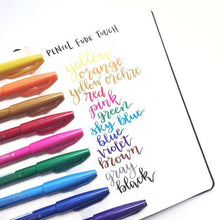 PENTEL FUDE TOUCH
yellow
orange
yellow ochre
red
pink
green
sky blue
blue
violet
brown
gray
black